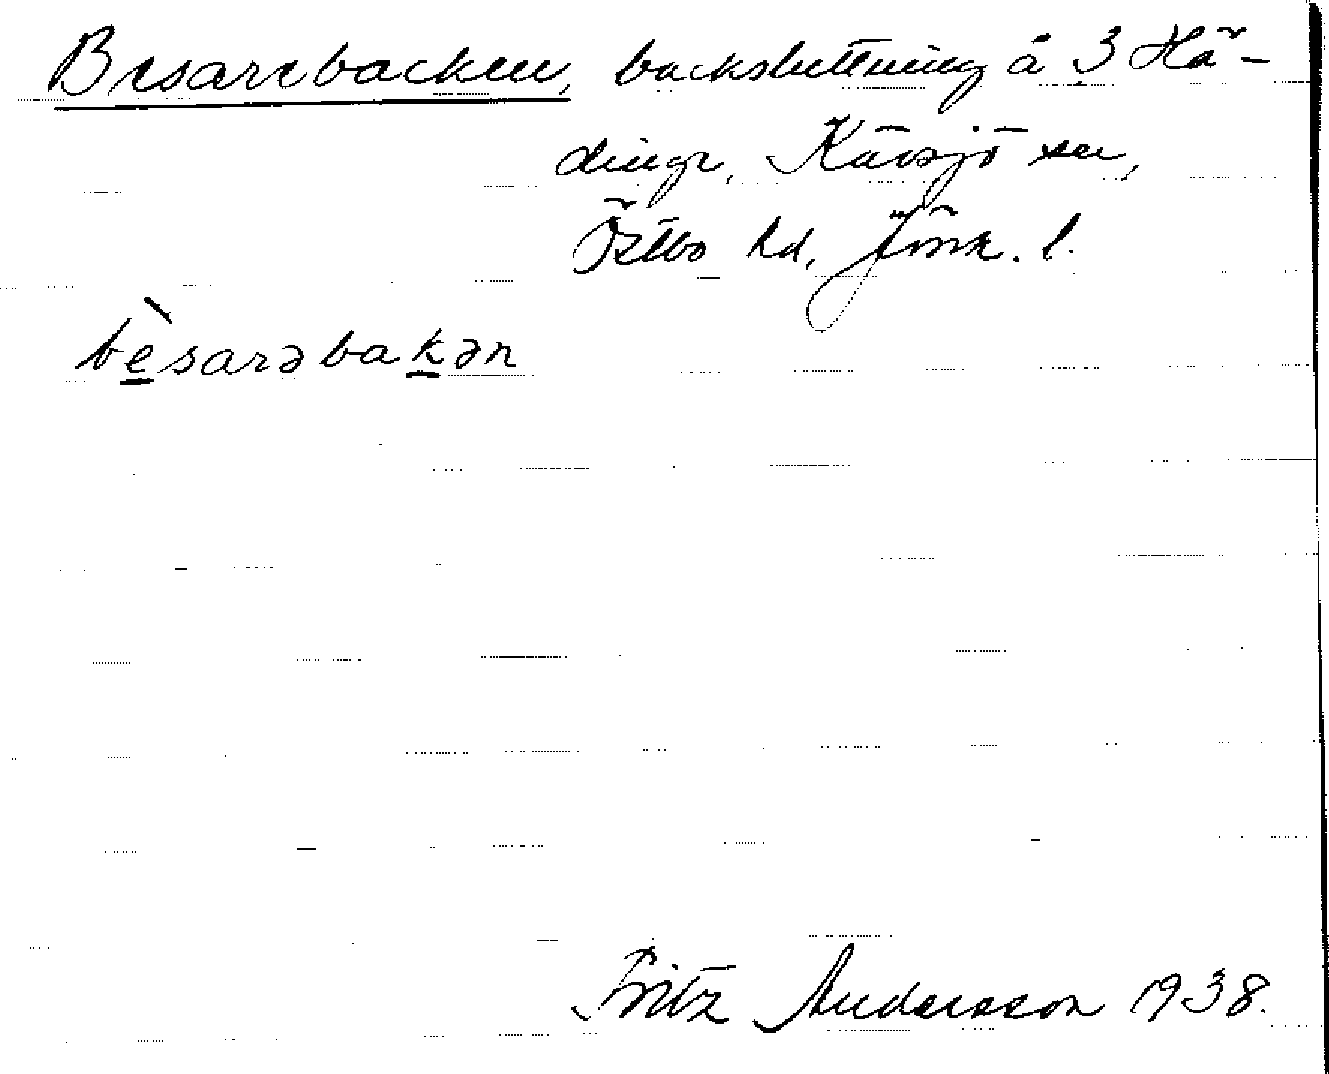 Besarebacken, backsluttning å 3 Hä-
dinge, Kävsjö sn,
Östbo hd, Jönk. l.
bèsarəbakən
Fritz Andersson 1938.